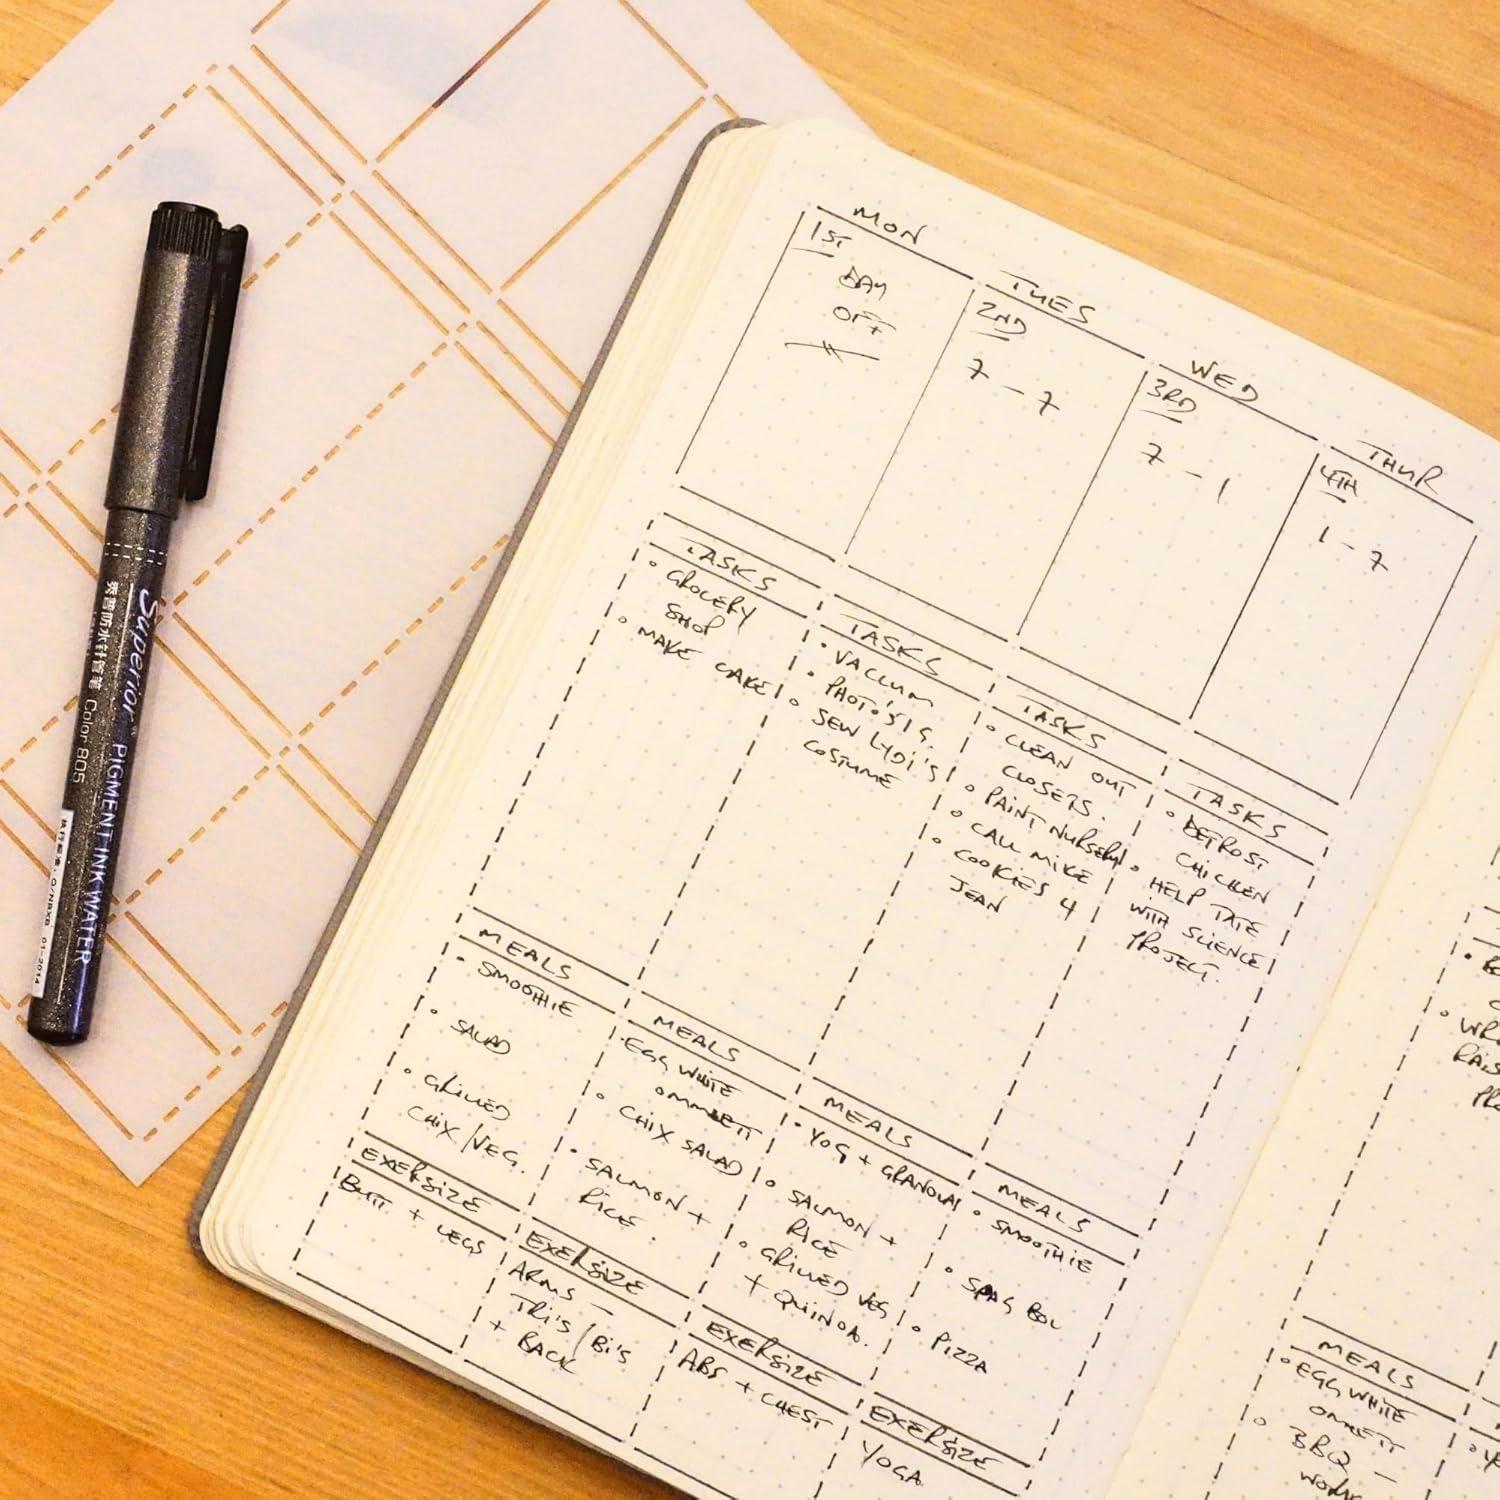 MON
1ST
DAY
OFF
TUES
2ND
7 - 7
WED
3RD
7 - 1
THUR
4TH
1 - 7
TASKS
• GROCERY
SHOP
• MAKE CAKE
TASKS
• VACCUM
• PHOTO'S I G.
• SEW LYDI'S
COSTUME
TASKS
• CLEAN OUT
CLOSETS.
• PAINT NURSERY
• CALL MIKE
• COOKIES 4
JEAN
TASKS
• DEFROST
CHICKEN
• HELP TATE
WITH SCIENCE
PROJECT.
MEALS
• SMOOTHIE
• SALAD
• GRILLED
CHIX / VEG.
MEALS
• EGG WHITE
OMMLETT
• CHIX SALAD
• SALMON +
RICE.
MEALS
• YOG + GRANOLA
• SALMON +
RICE
• GRILLED VEG
+ QUINOA.
MEALS
• SMOOTHIE
• SPAG BOL
• PIZZA
EXERSIZE
BUTT + LEGS
EXERSIZE
ARMS -
TRI'S / BI'S
+ BACK
EXERSIZE
ABS + CHEST
EXERSIZE
YOGA
MEALS
• EGG WHITE
OMLETT
• BBQ -
Superior PIGMENT INK WATER
秀普防水针管笔 Color 805
执行标准: Q/NBXB 01-2014